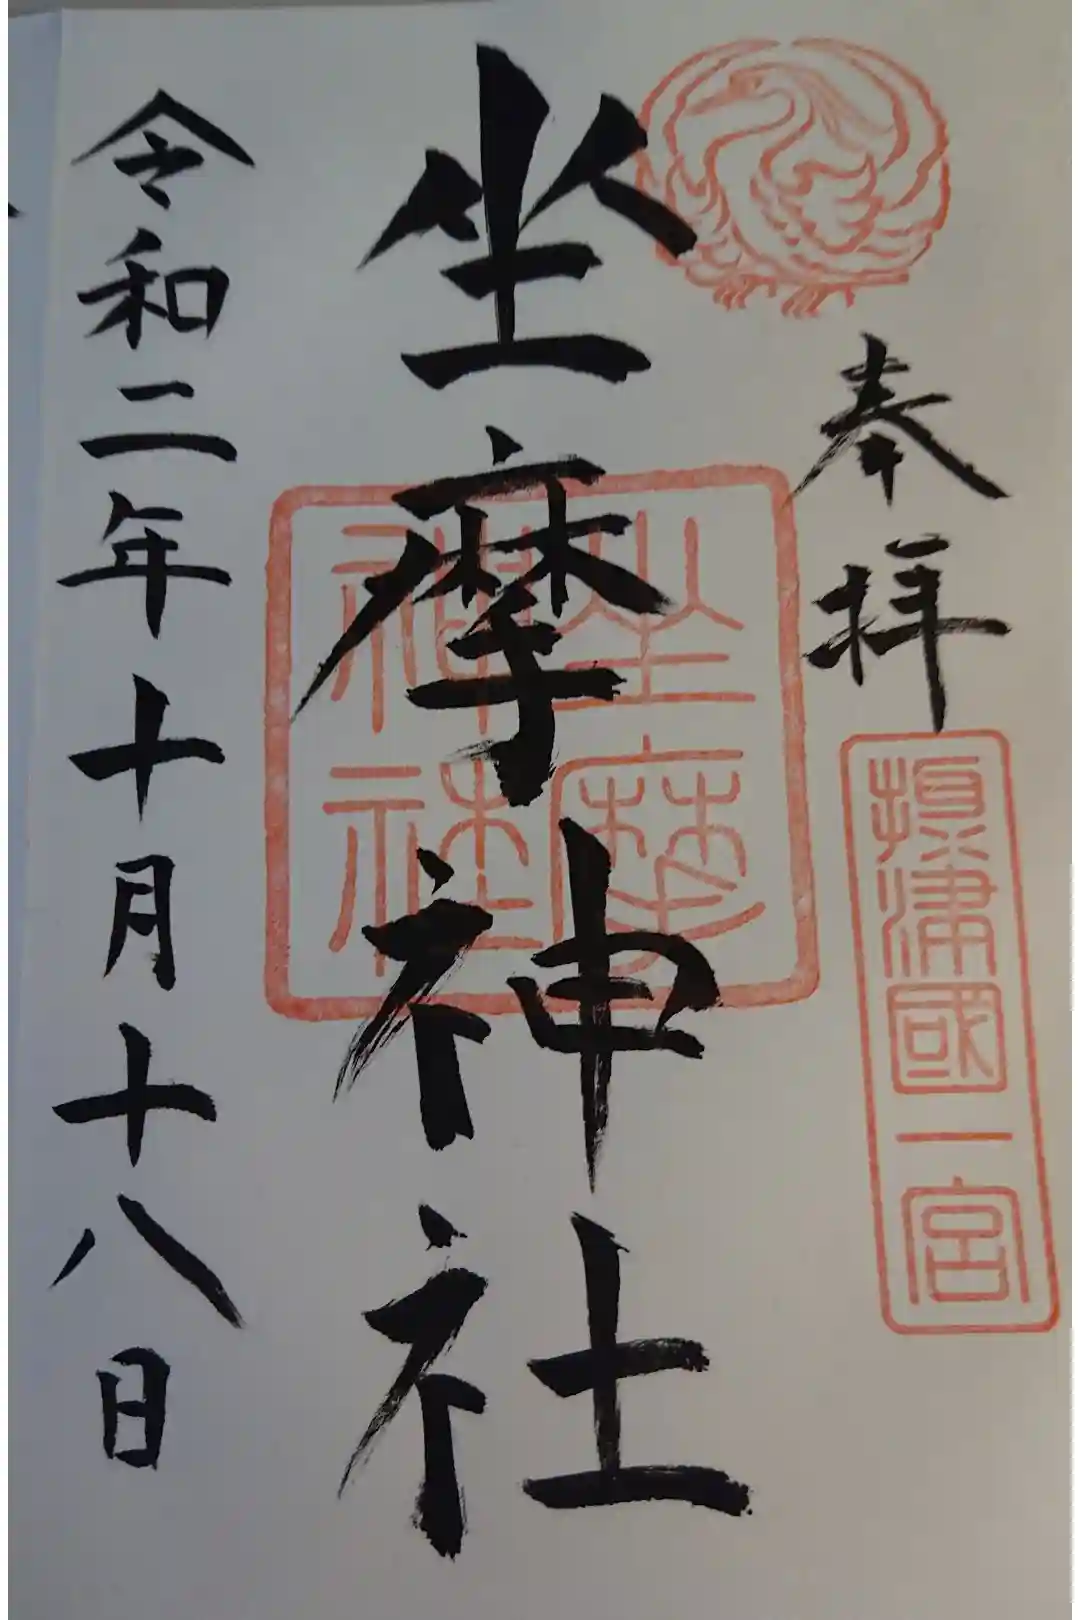 奉拝
攝津國一宮
坐摩神社
坐摩神社
令和二年十月十八日